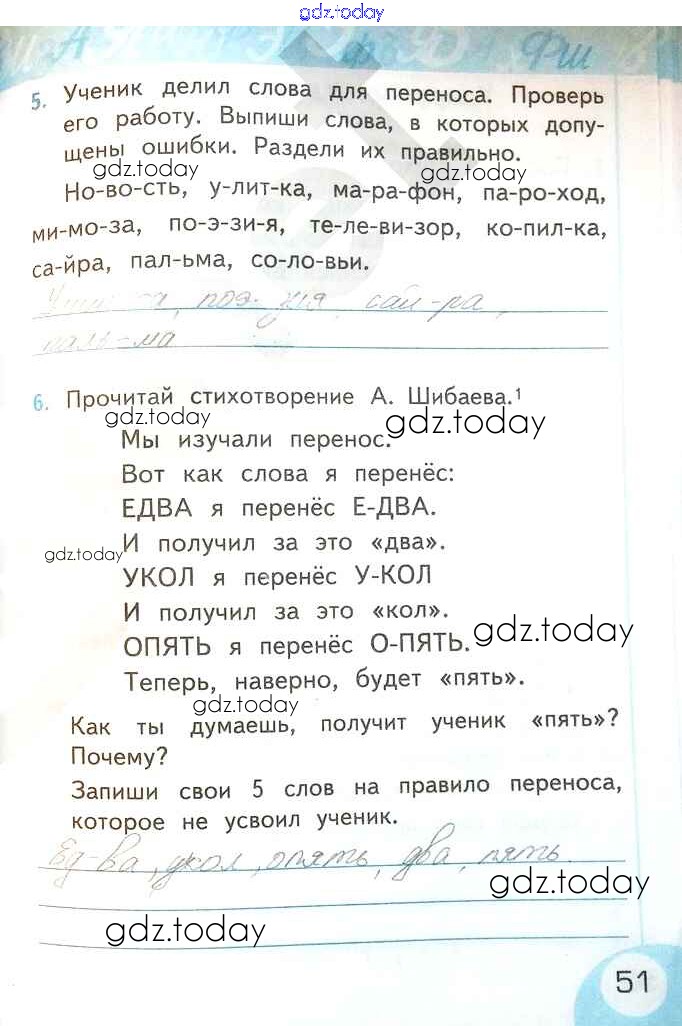 gdz.today
5. Ученик делил слова для переноса. Проверь
его работу. Выпиши слова, в которых допу-
щены ошибки. Раздели их правильно.
gdz.today gdz.today
Но-во-сть, у-лит-ка, ма-ра-фон, па-ро-ход,
ми-мо-за, по-э-зи-я, те-ле-ви-зор, ко-пил-ка,
са-йра, пал-ьма, со-ло-вьи.
поэ- сай-ра,
паль-ма
6. Прочитай стихотворение А. Шибаева.¹
gdz.today gdz.today
Мы изучали перенос.
Вот как слова я перенёс:
ЕДВА я перенёс Е-ДВА.
И получил за это «два».
gdz.today
УКОЛ я перенёс У-КОЛ
И получил за это «кол».
ОПЯТЬ я перенёс О-ПЯТЬ.
gdz.today
Теперь, наверно, будет «пять».
gdz.today
Как ты думаешь, получит ученик «пять»?
Почему?
Запиши свои 5 слов на правило переноса,
которое не усвоил ученик.
Ед-ва, укол, опять, два, пять.
gdz.today
gdz.today
51